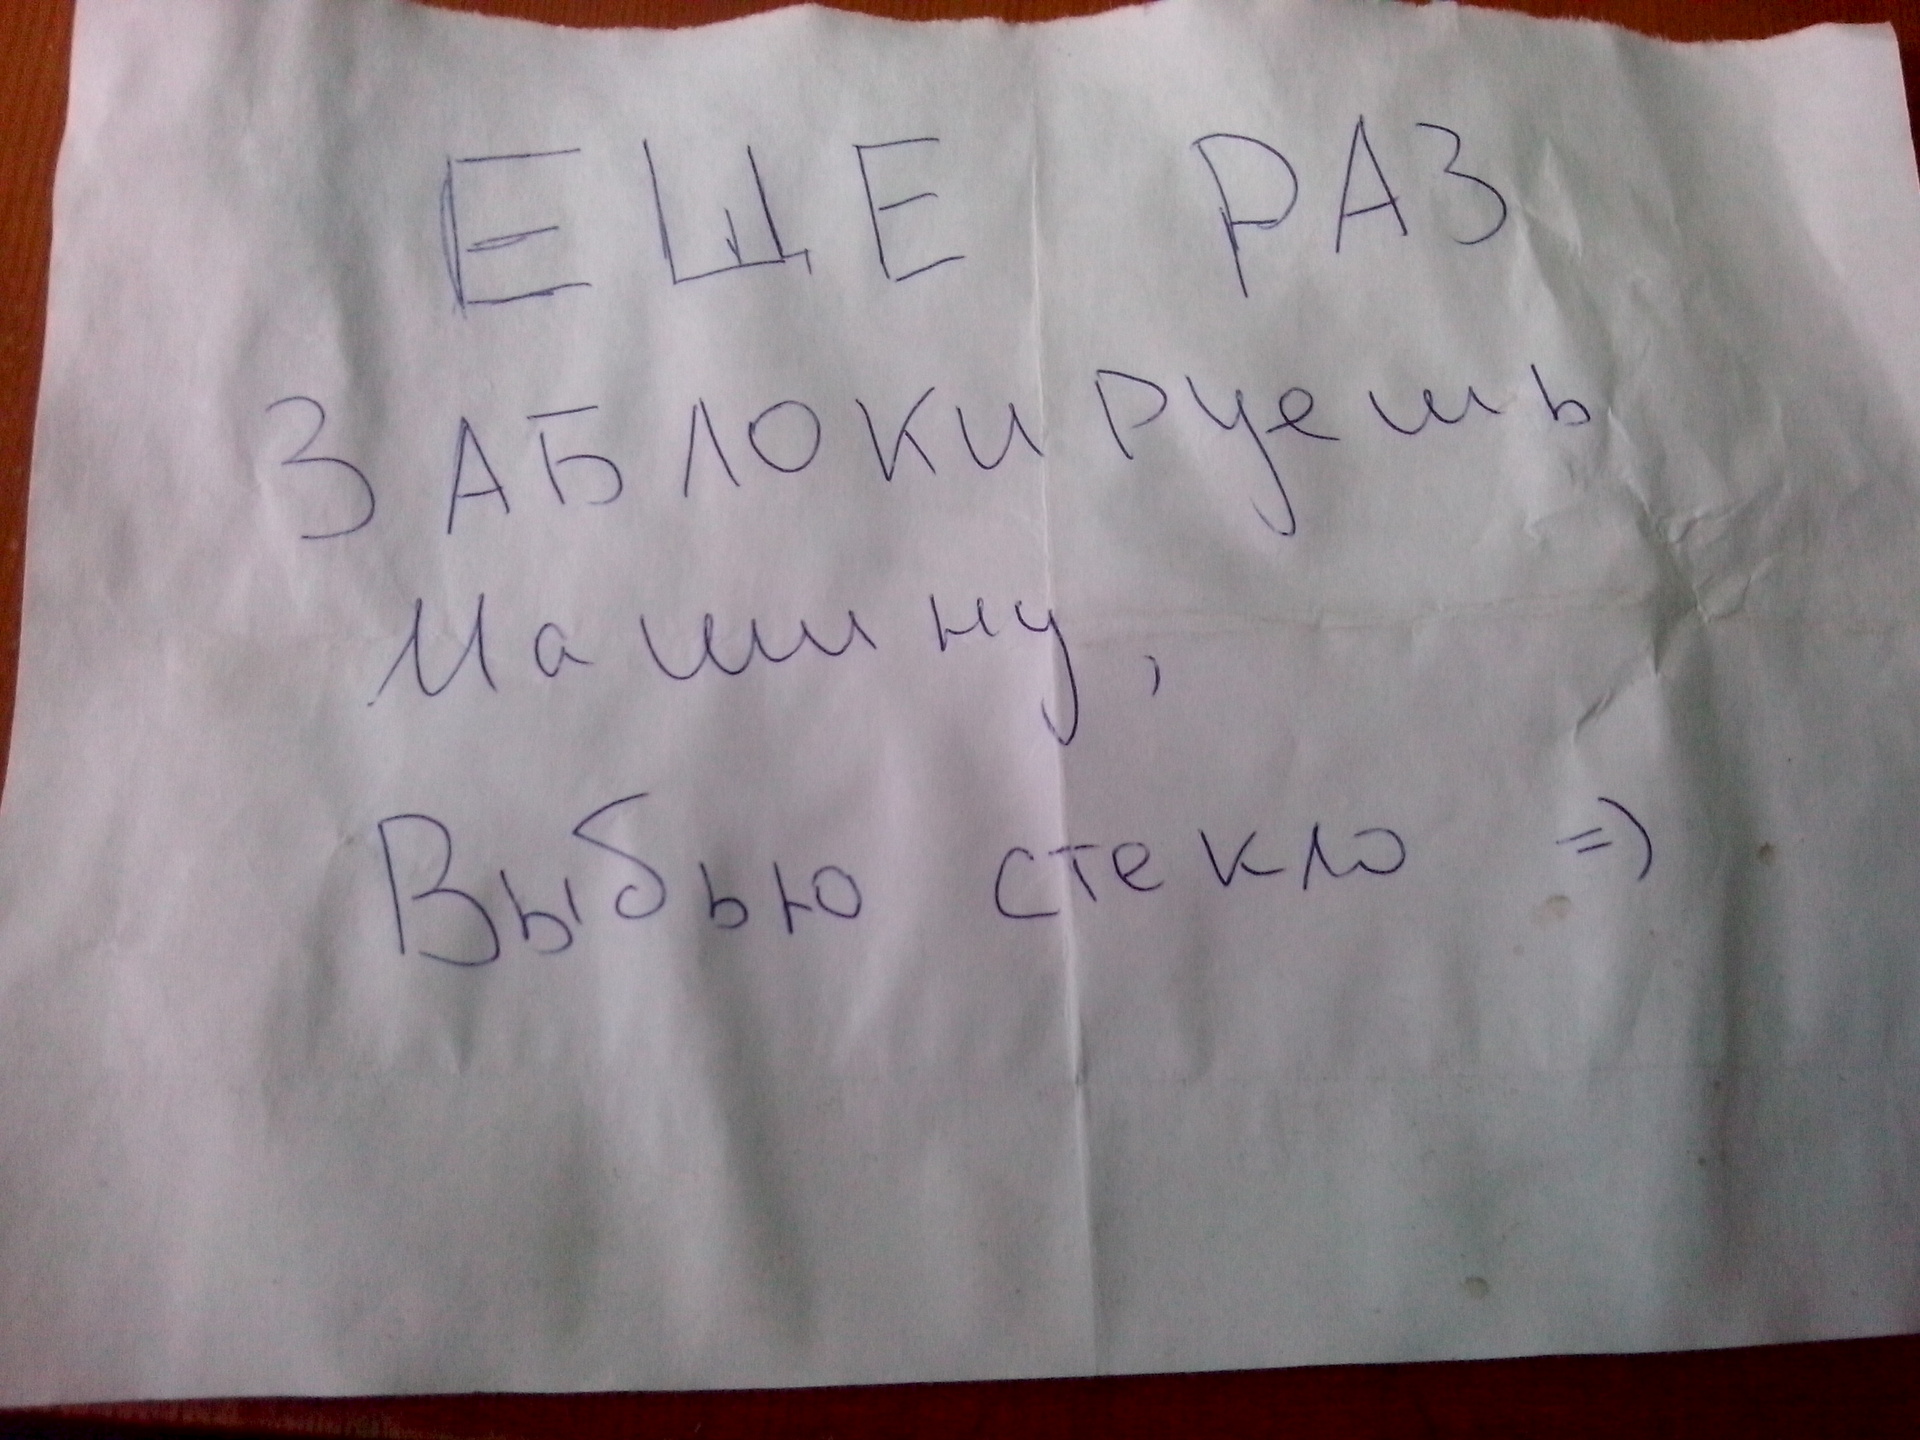 ЕЩЕ РАЗ
ЗАБЛОКИРуешь
Машину,
Выбью стекло =)